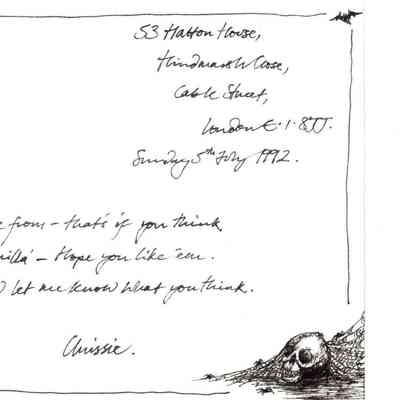 53 Hatton House,
Hindmarsh Close,
Cable Street,
London E.1.8JJ.
Sunday 5th July 1992.
from - that's if you think
- Hope you like 'em.
let me know what you think.
Chrissie.